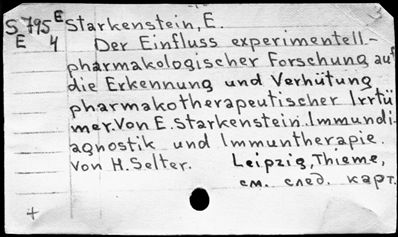 S 795 E Starkenstein, E.
E 4 Der Einfluss experimentell-
pharmakologischer Forschung auf
die Erkennung und Verhütung
pharmakotherapeutischer Irrtü
mer. Von E. Starkenstein. Immundi-
agnostik und Immuntherapie.
Von H. Selter. Leipzig, Thieme,
+ см. след. карт.